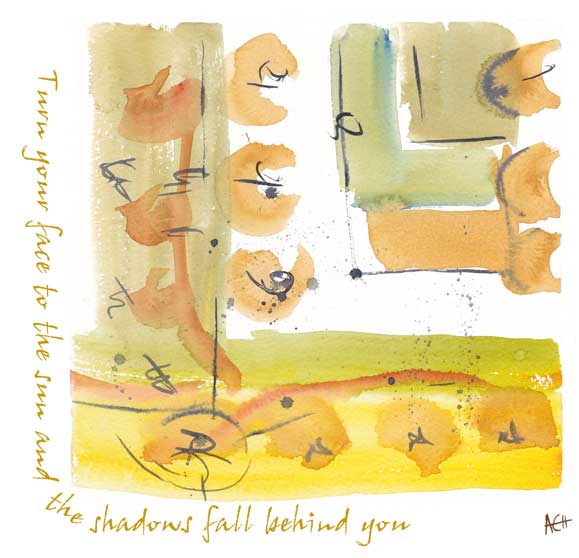 Turn your face to the sun and
the shadows fall behind you
ACH